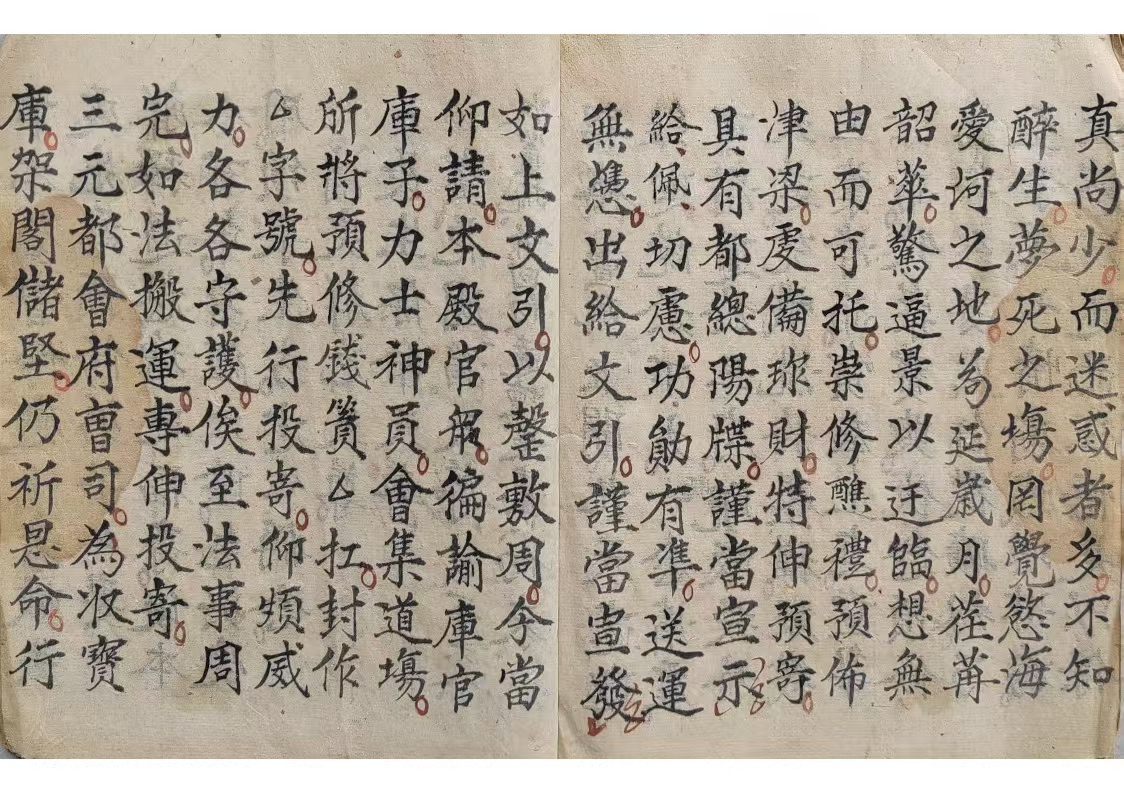 真尚少。而迷惑者多。不知
醉生。夢死之塲。罔覺慾海
愛河之地。为延歲月。荏苒
韶華。驚逼景以迂臨。想無
由而可托。崇修醮禮。預佈
津梁。虔備珎財。特伸預寄。
具有都總陽牒。謹當宣示
給佩切慮。功勛有凖。送運
無憑。出給文引。謹當宣發
如上文引。以罄敷周。今當
仰請。本殿官衆。徧諭庫官
庫子。力士神員。會集道塲。
所將預修錢篢厶扛。封作
厶字號。先行投寄。仰煩威
力。各各守護。俟至法事周
完。如法搬運。專伸投寄。
三元都會府曹司。為收寶
庫。架閣儲堅。仍祈恩命。行